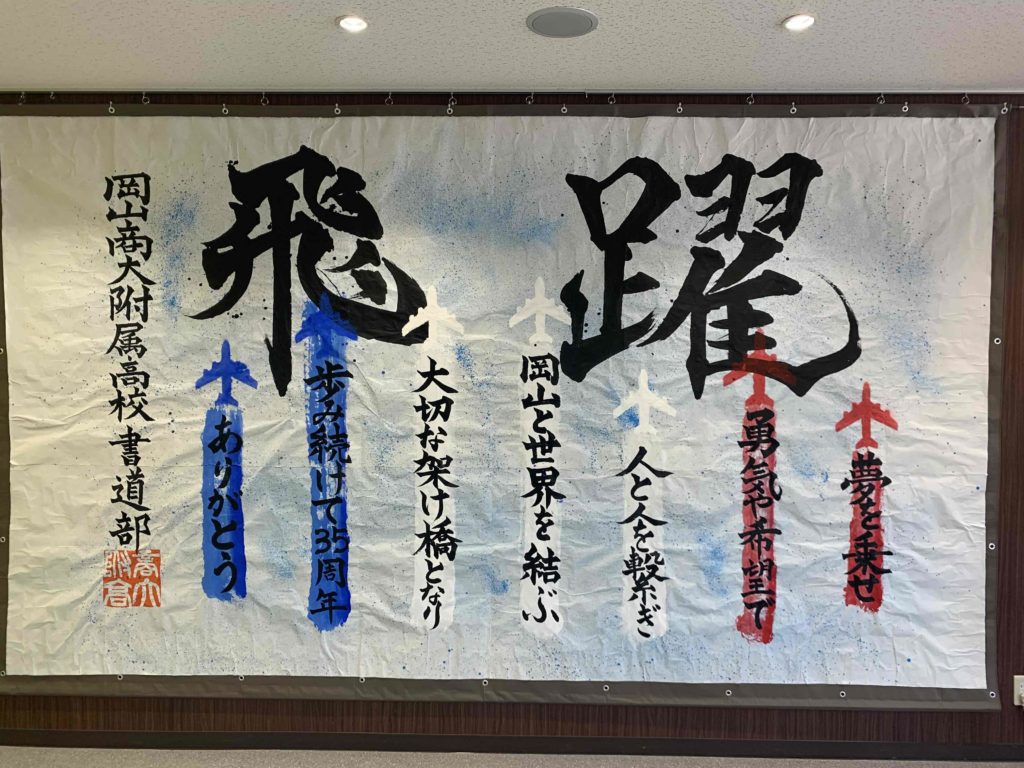 飛躍
夢を乗せ
勇気や希望で
人と人を繋ぎ
岡山と世界を結ぶ
大切な架け橋となり
歩み続けて35周年
ありがとう
岡山商大附属高校書道部